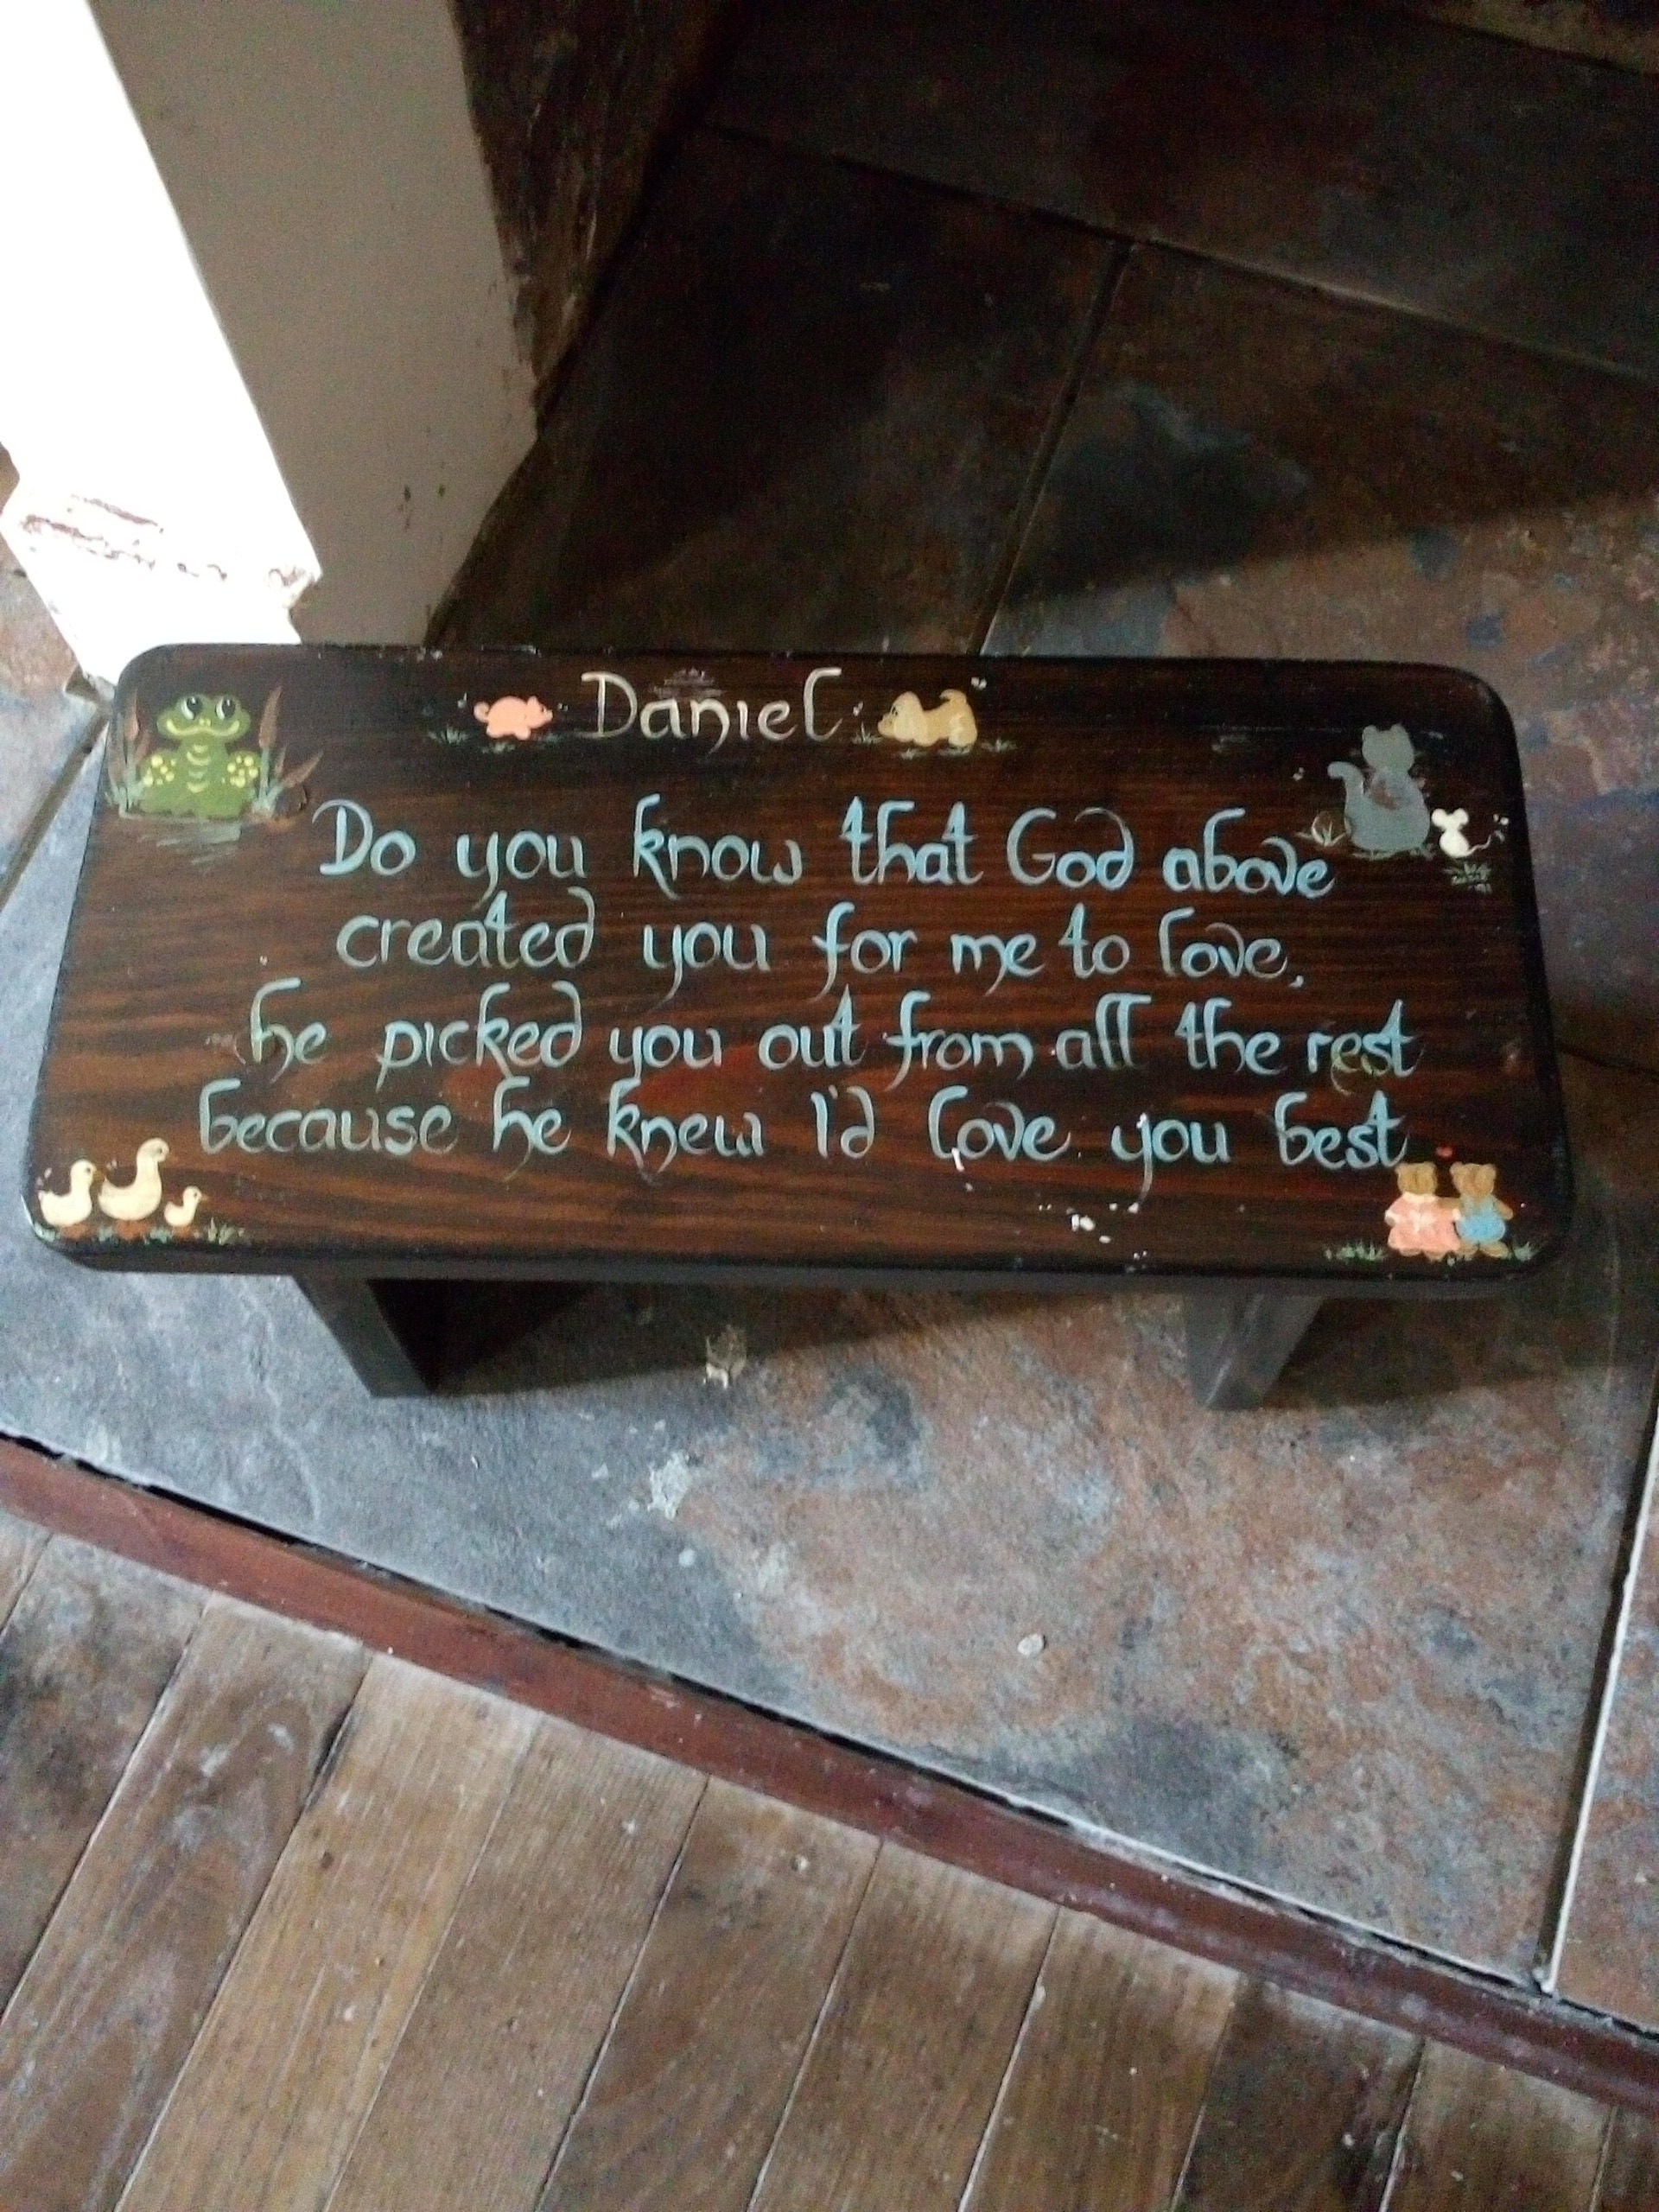 Daniel
Do you know that God above
created you for me to love,
he picked you out from all the rest
because he knew I'd love you best